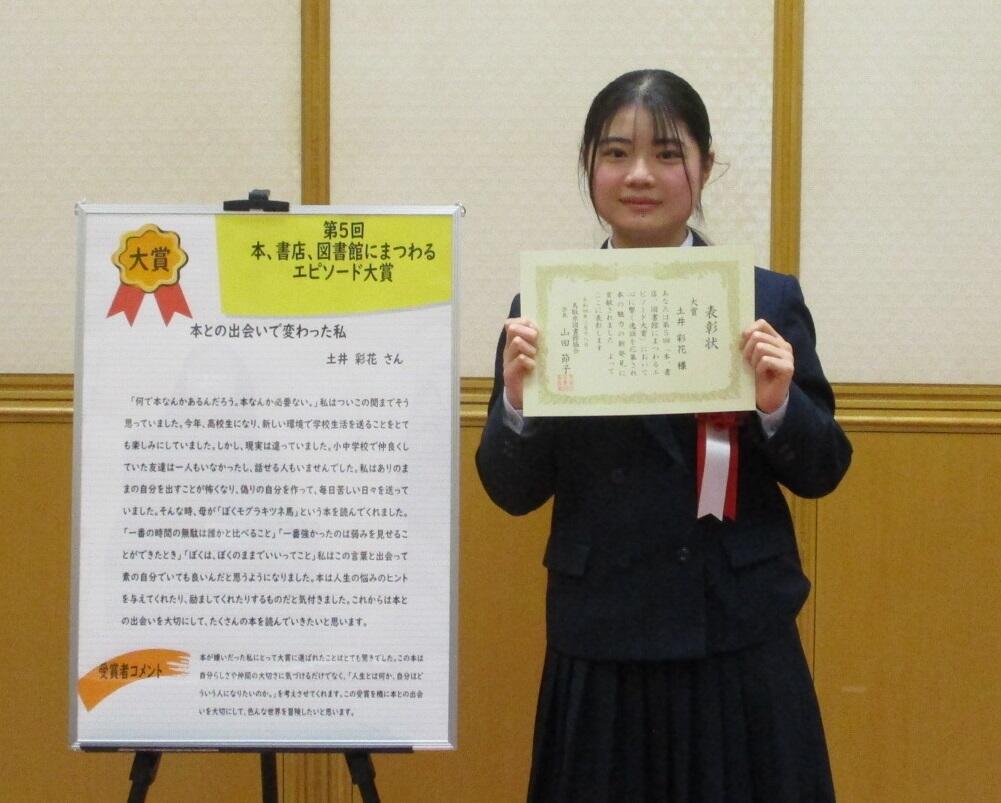 大賞
第5回
本、書店、図書館にまつわる
エピソード大賞
本との出会いで変わった私
土井 彩花 さん
「何で本なんかあるんだろう。本なんか必要ない。」私はついこの間までそう
思っていました。今年、高校生になり、新しい環境で学校生活を送ることをとて
も楽しみにしていました。しかし、現実は違っていました。小中学校で仲良くし
ていた友達は一人もいなかったし、話せる人もいませんでした。私はありのま
まの自分を出すことが怖くなり、偽りの自分を作って、毎日苦しい日々を送って
いました。そんな時、母が「ぼくモグラキツネ馬」という本を読んでくれました。
「一番の時間の無駄は誰かと比べること」「一番強かったのは弱みを見せるこ
とができたとき」「ぼくは、ぼくのままでいいってこと」私はこの言葉と出会って
素の自分でいても良いんだと思うようになりました。本は人生の悩みのヒント
を与えてくれたり、励ましてくれたりするものだと気付きました。これからは本と
の出会いを大切にして、たくさんの本を読んでいきたいと思います。
受賞者コメント
本が嫌いだった私にとって大賞に選ばれたことはとても驚きでした。この本は
自分らしさや仲間の大切さに気づけるだけでなく、「人生とは何か、自分はど
ういう人になりたいのか。」を考えさせてくれます。この受賞を機に本との出会
いを大切にして、色んな世界を冒険したいと思います。
表彰状
大賞
土井 彩花 様
あなたは第5回「本、書
店、図書館にまつわるエ
ピソード大賞」において
心に響く逸話を応募され
本の魅力の新発見に
貢献されました よって
ここに表彰します
鳥取県図書館協会
会長 山田 節子